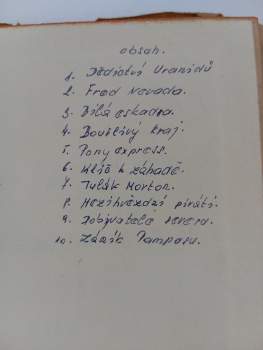 obsah.
1. Dědictví Uranidů
2. Fred Nevada.
3. Bílá eskadra.
4. Bouřlivý kraj.
5. Pony express.
6. Klíč k záhadě.
7. Tulák Morton.
8. Mezihvězdní piráti.
9. Dobyvatelé severu.
10. Zánik Pamparu.